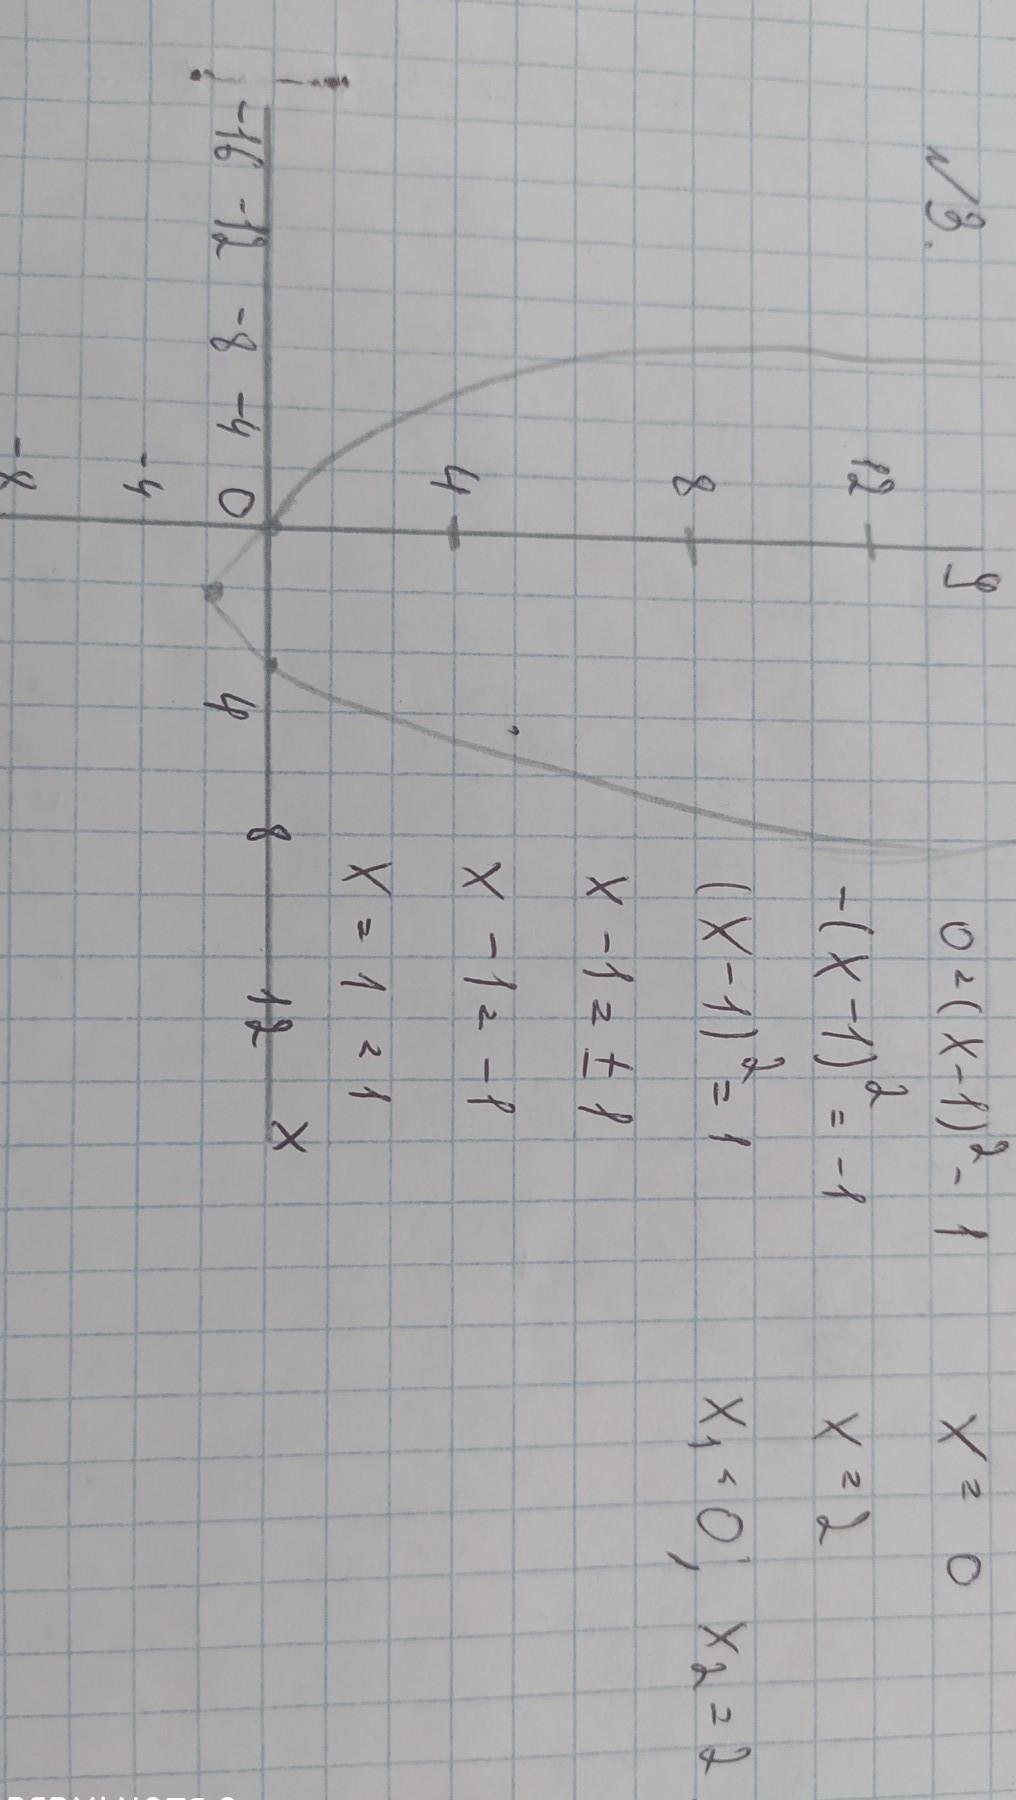 №3.
y
12
8
4
-16 -12 -8 -4 0 4 8 12 x
-4
-8
0=(x-1)²-1
-(x-1)²=-1
(x-1)²=1
x-1=±1
x-1=-1
x=1=1
x=0
x=2
x₁=0; x₂=2